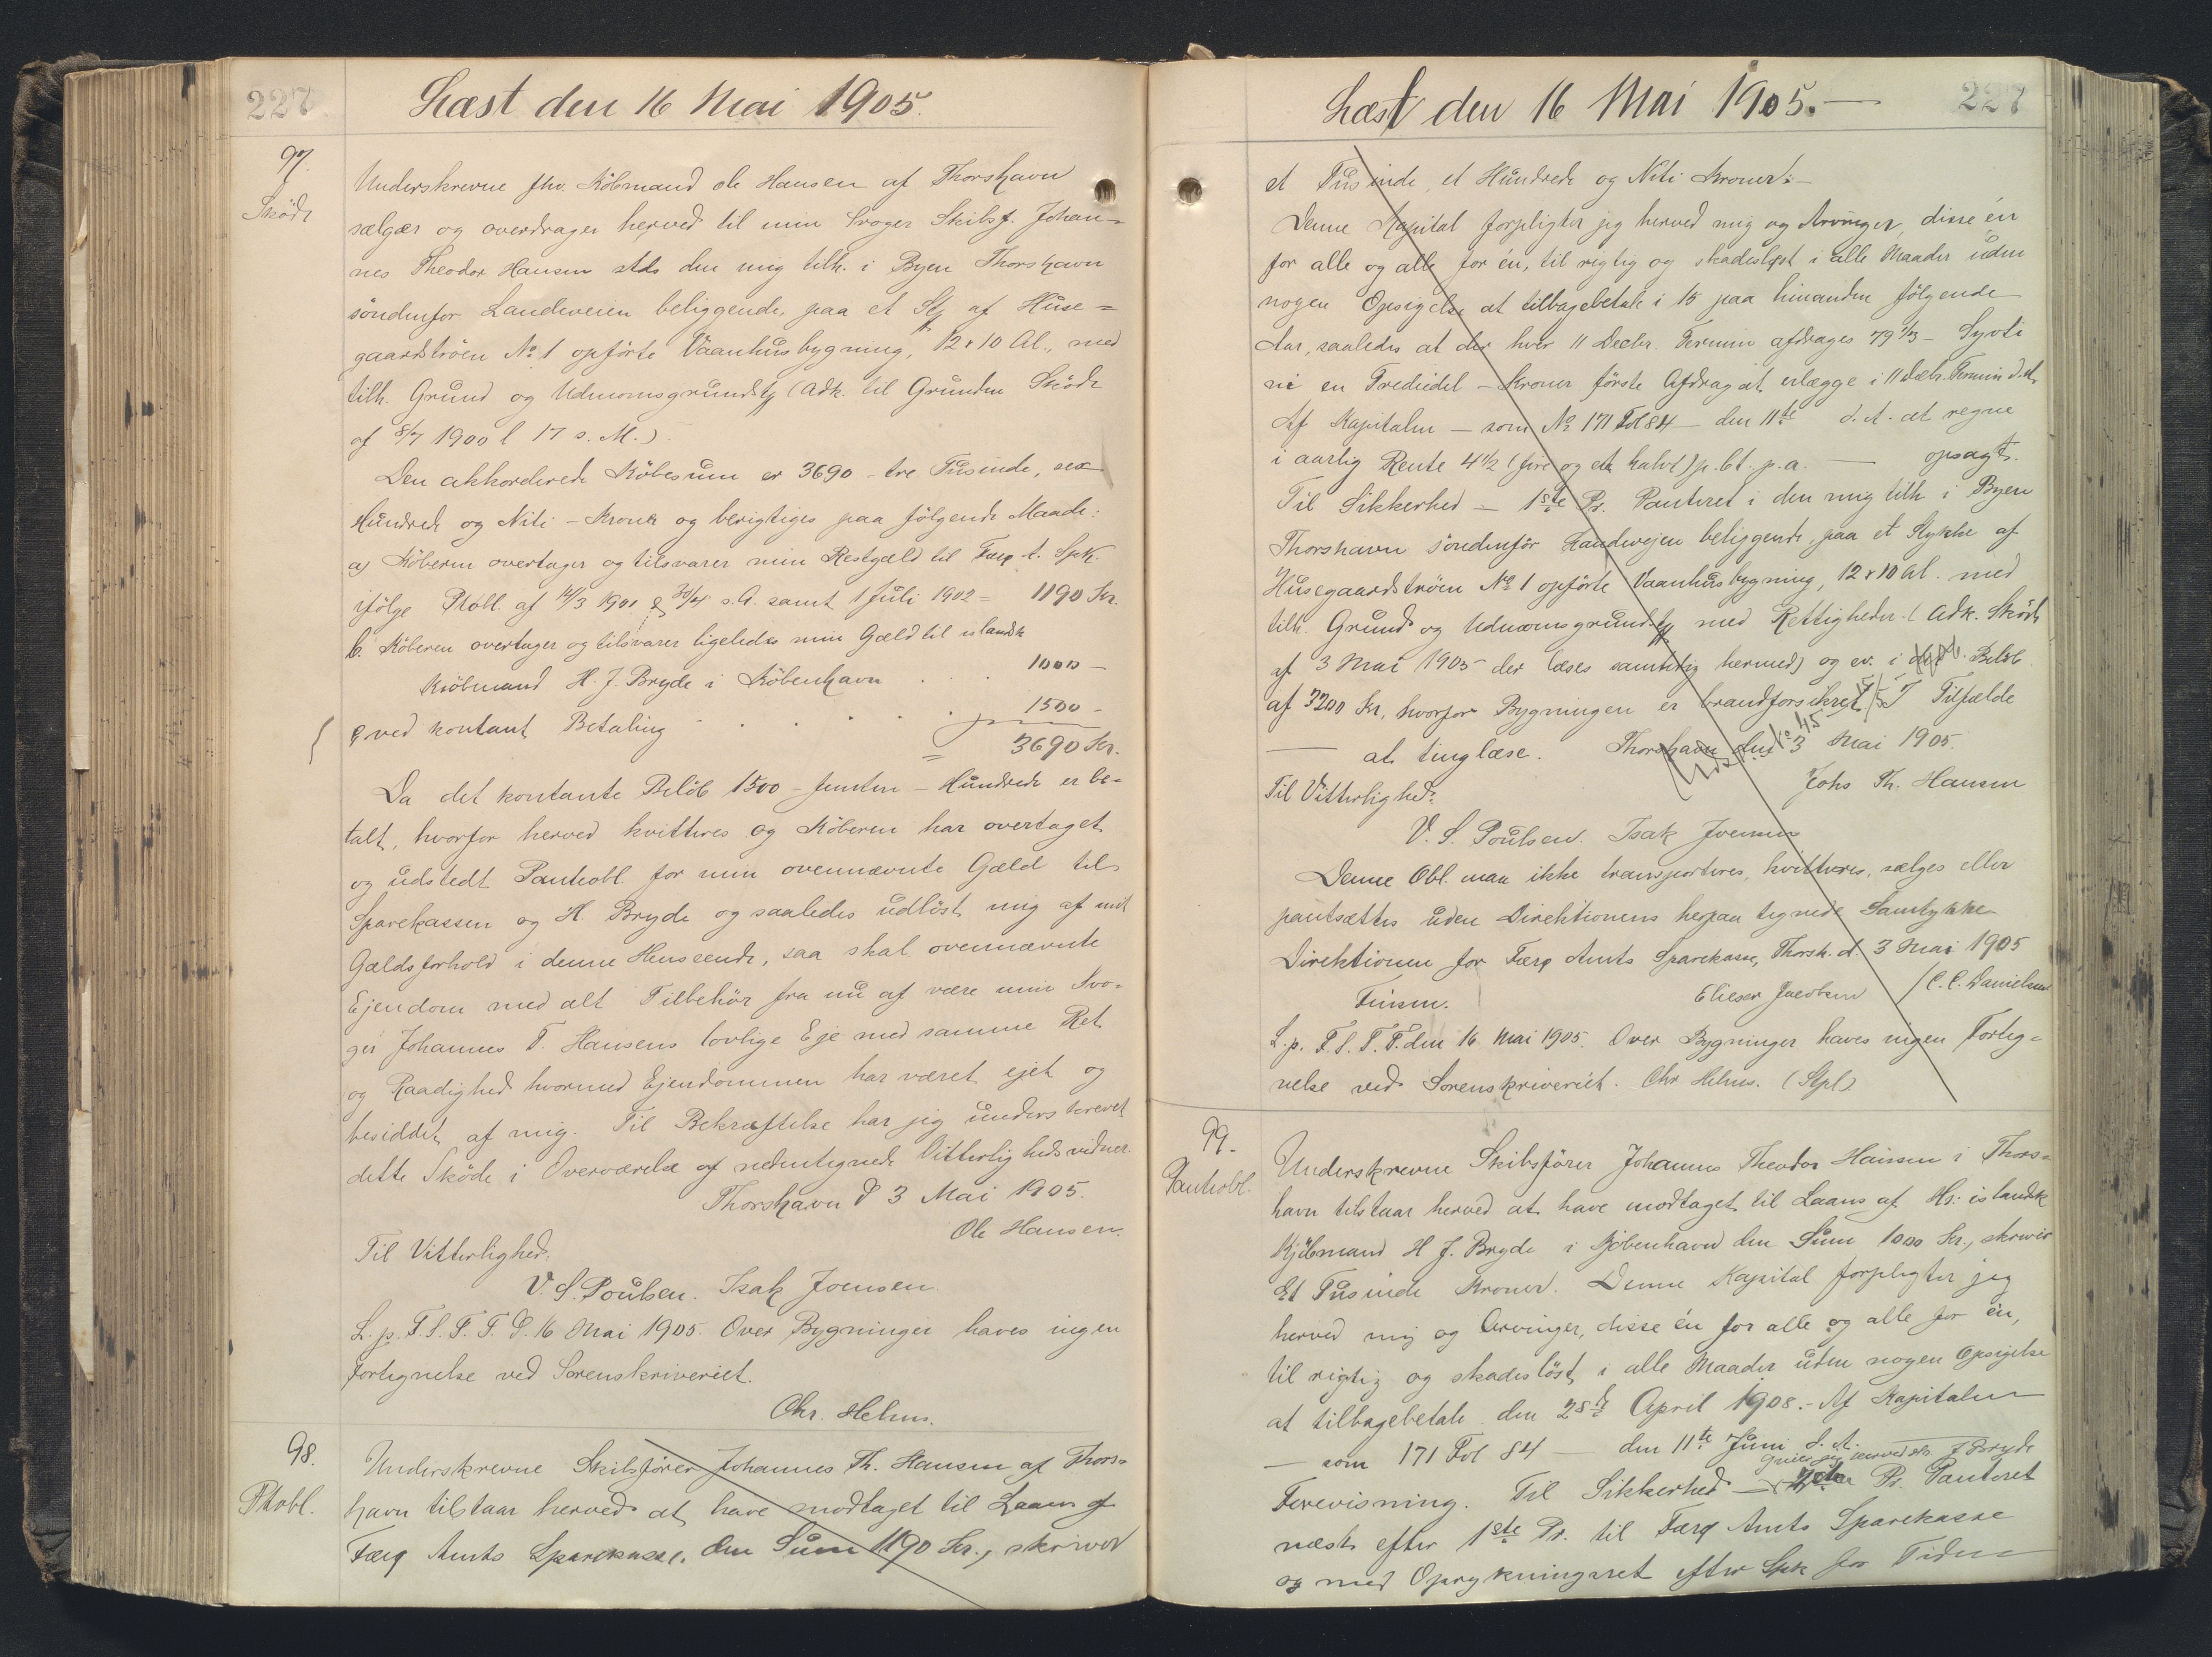 227
Læst den 16 Mai 1905.
97.
Sköde
Underskrevne fhv. Köbmand Ole Hansen af Thorshavn
sælger og overdrager herved til min Svoger Skibsf. Johan=
nes Theodor Hansen stds den mig tilh. i Byen Thorshavn
söndenfor Landeveien beliggende, paa et Stj af Huse=
gaardströen No 1 opförte Vaanhusbygning, 12 x 10 Al., med
tilh. Grund og Udenomsgrundstj (Adk. til Grunden Sköde
af 8/7 1900 l 17 s. M.).
Den akkorderede Köbesum er 3690 - tre Tusinde, sex
Hundrede og Niti - Kroner og berigtiges paa fölgende Maade:
a) Köberen overtager og tilsvarer min Restgæld til Færø A. Spk.
ifölge Ptobl. af 14/3 1901 & 30/4 s. A. samt 1 Juli 1902 = 1190 Kr.
b. Köberen overtager og tilsvarer ligeledes min Gæld til islandsk
Kiöbmand H. J. Bryde i Köbenhavn . . . 1000 -
& ved kontant Betaling . . . . . . 1500 -
= 3690 Kr.
Da det kontante Belöb 1500 - femten - Hundrede er be=
talt, hvorfor herved kvitteres og Köberen har overtaget
og udstedt Pantobl. for min ovennævnte Gæld til
Sparekassen og H. Bryde og saaledes udlöst mig af mit
Gældsforhold i denne Henseende, saa skal ovennævnte
Ejendom med alt Tilbehör fra nu af være min Svo=
ger Johannes T. Hansens lovlige Eje med samme Ret
og Raadighed hvormed Ejendommen har været ejet og
besiddet af mig. Til Bekræftelse har jeg underskrevet
dette Sköde i Overværelse af nedentegnede Vitterlighedsvidner.
Thorshavn d 3 Mai 1905.
Ole Hansen.
Til Vitterlighed:
V. S. Poulsen. Isak Joensen.
L. p. T. S. T. T. d. 16 Mai 1905. Over Bygninger haves ingen
Fortegnelse ved Sorenskriveriet.
Chr. Helms.
98.
Ptobl.
Underskrevne Skibsförer Johannes Th. Hansen af Thors=
havn tilstaar herved at have modtaget til Laans af
Færø Amts Sparekasse, den Sum 1190 Kr., skriver
227
Læst den 16 Mai 1905.—
et Tusinde, et Hundrede og Niti Kroner.—
Denne Kapital forpligter jeg herved mig og Arvinger, disse én
for alle og alle for én, til rigtig og skadeslöst i alle Maader uden
nogen Opsigelse at tilbagebetale i 15 paa hinanden fölgende
Aar, saaledes at der hver 11 Decbr. Termin afdrages 79 1/3 - Syvti
ni en Trediedel - Kroner förste Afdrag at erlægge i 11 Decbr. Termin d. A.
Af Kapitalen — som No 171 Fol 84 — den 11te d. A. at regne
i aarlig Rente 4 1/2 (fire og et halvt) p. Ct. p. a. — opsagt.
Til Sikkerhed — 1ste Pr. Panteret i den mig tilh. i Byen
Thorshavn söndenfor Landevejen beliggende, paa et Stykke af
Husegaardströen No 1 opförte Vaanhusbygning, 12 x 10 Al. med
tilh. Grund og Udenomsgrundstj med Rettigheder. (Adk. Sköde
af 3 Mai 1905 der læses samtidig hermed) og ev. i Belöb
af 3200 Kr, hvorfor Bygningen er brandforsikret. I Tilfælde
— at tinglæse. Thorshavn den 3 Mai 1905.
Johs Th. Hansen
Til Vitterlighed:
V. S. Poulsen. Isak Joensen
Denne Obl. maa ikke transporteres, kvitteres, sælges eller
pantsættes uden Direktionens herpaa tegnede Samtykke
Direktionen for Færø Amts Sparekasse, Thorsh. d. 3 Mai 1905
Finsen. Elieser Jacobsen / C. C. Danielsen
L. p. T. S. T. T. den 16. Mai 1905. Over Bygninger haves ingen Forteg=
nelse ved Sorenskriveriet. Chr Helms. (Stpl)
99.
Pantobl.
Underskrevne Skibsförer Johannes Theodor Hansen i Thors=
havn tilstaar herved at have modtaget til Laans af Hr: islandsk
Kjöbmand H J. Bryde i Kjöbenhavn den Sum 1000 Kr., skriver
Et Tusinde Kroner. Denne Kapital forpligter jeg
herved mig og Arvinger, disse én for alle og alle for én,
til rigtig og skadeslöst i alle Maader uden nogen Opsigelse
at tilbagebetale den 28de April 1908.- Af Kapitalen
— som 171 Fol 84 — den 11te Juni d. A.
giver jeg herved Hr. J Bryde
Forevisning. Til Sikkerhed — Pr. Panteret
næst efter 1ste Pr. til Færø Amts Sparekasse
og med Oprykningsret efter Spk for Tiden